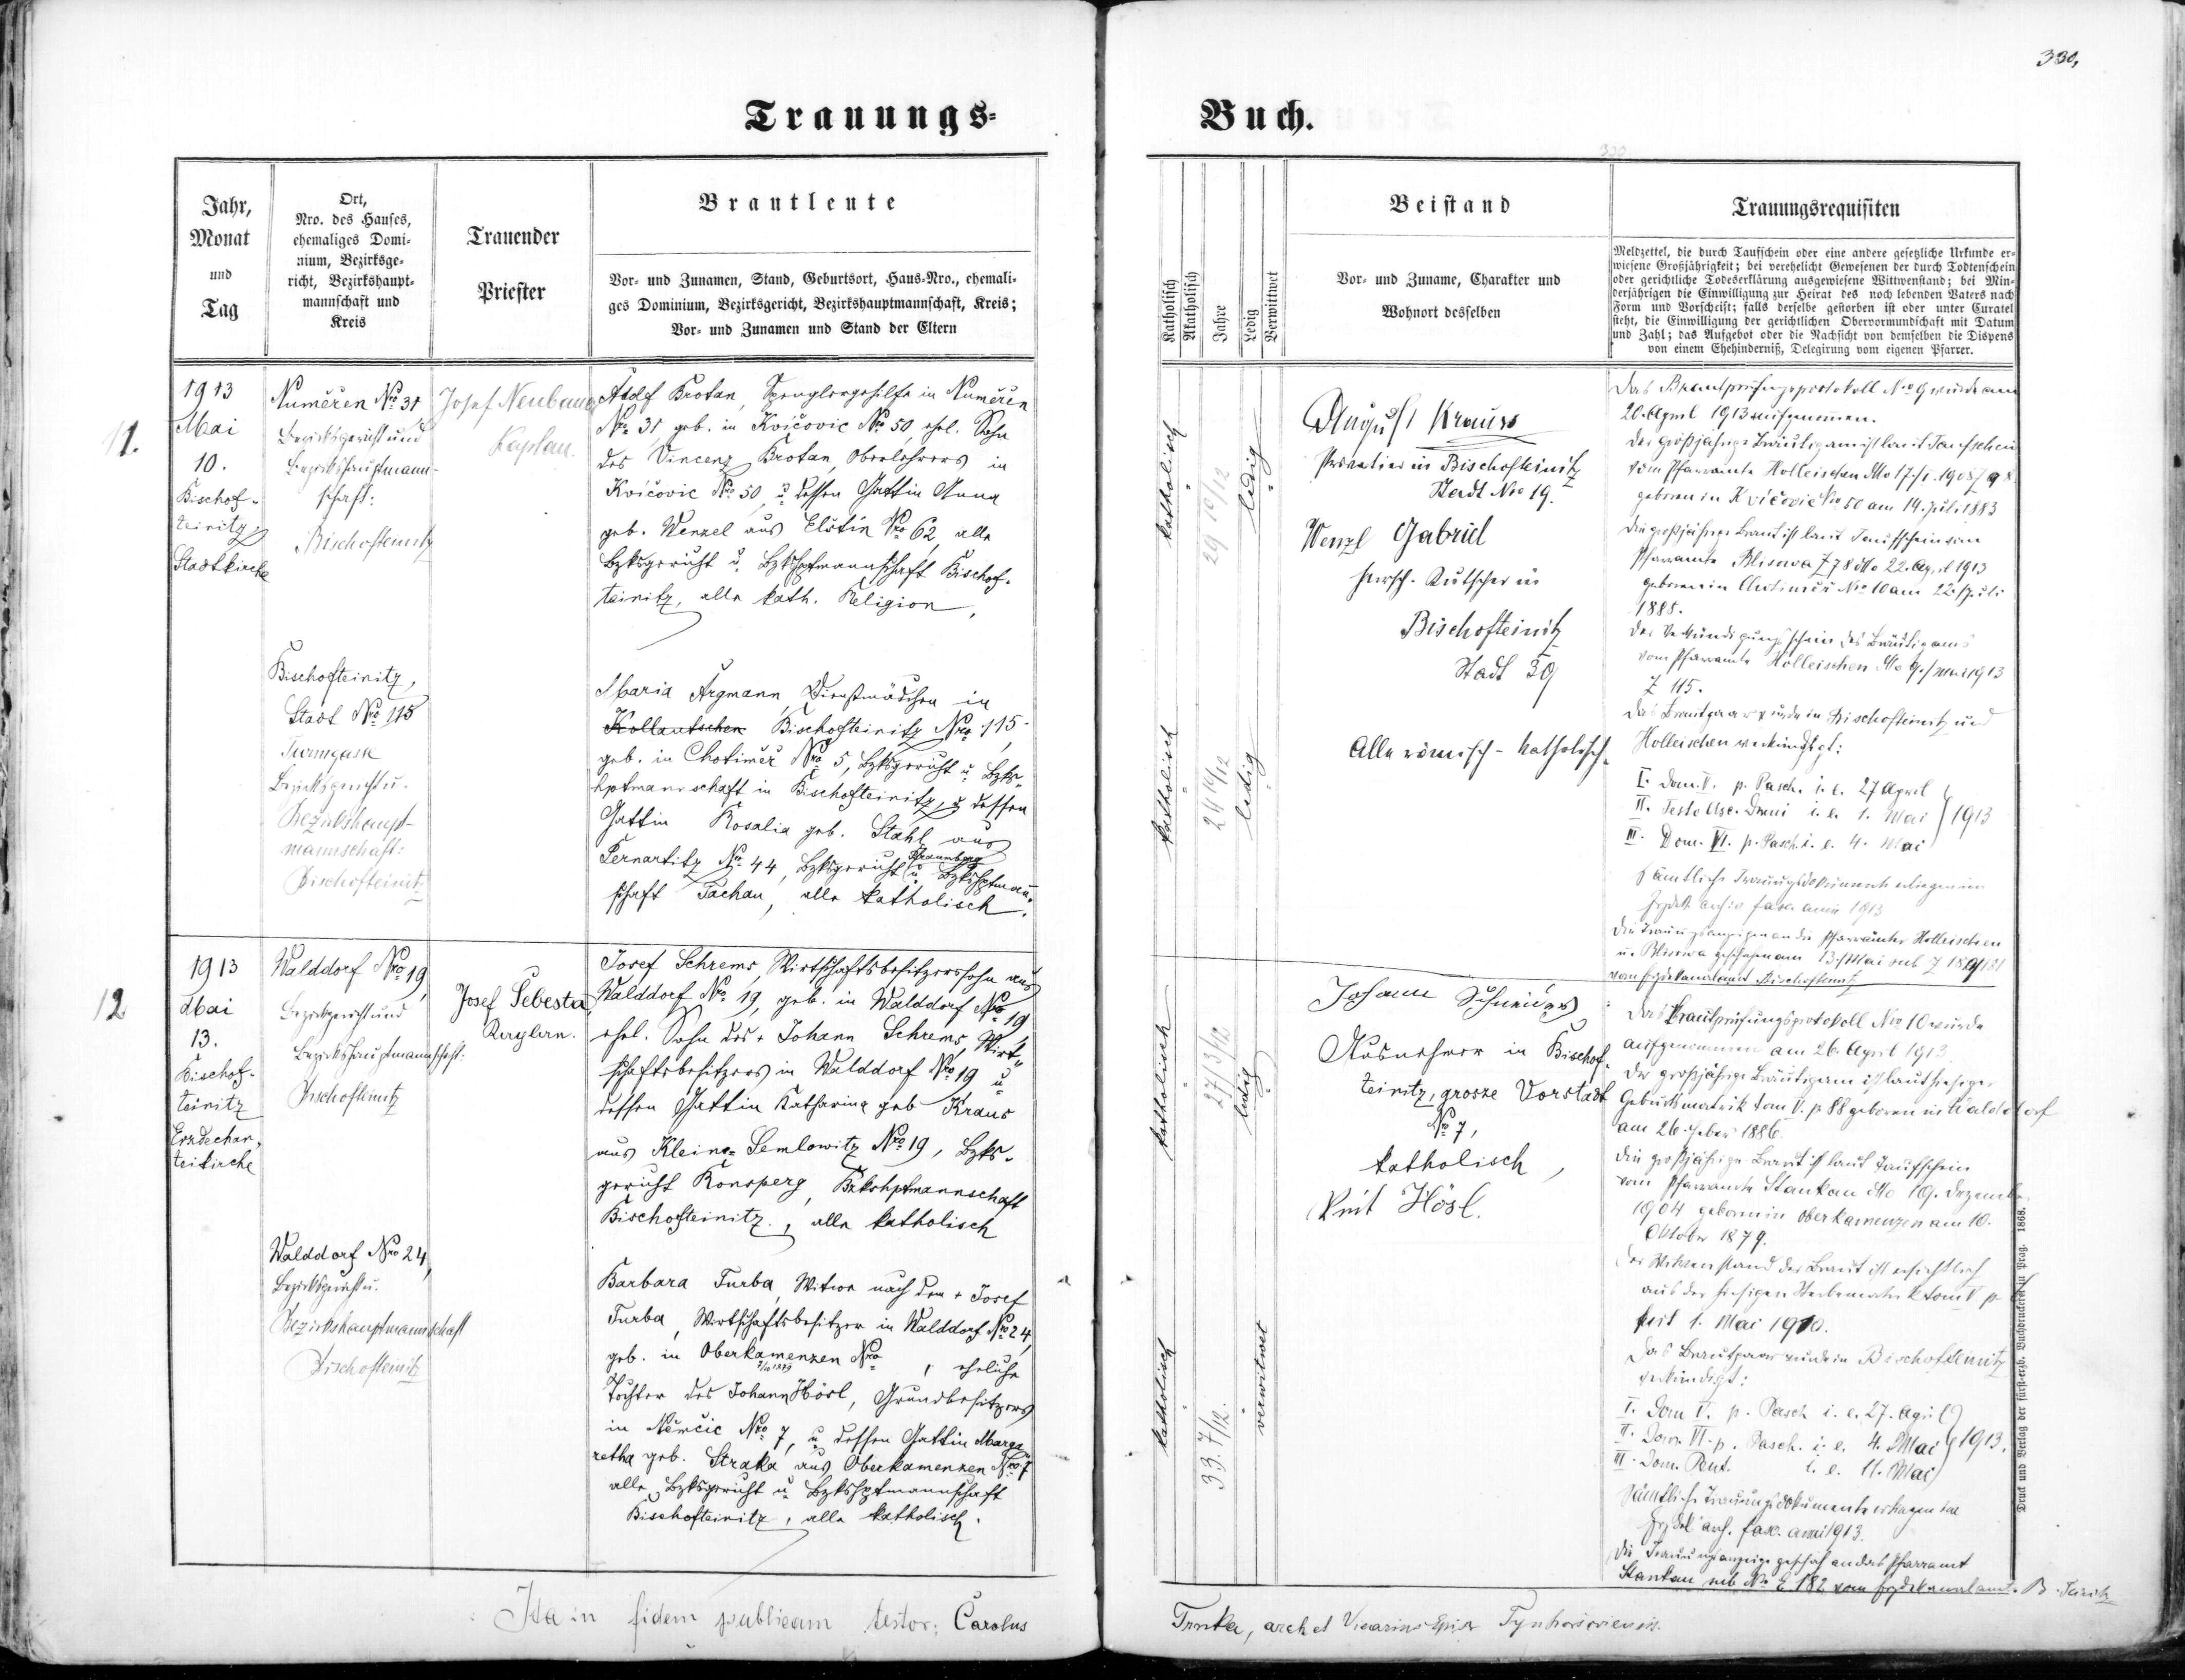 330,
Trauungs-
Buch.
Jahr,
Monat
und
Tag
Ort,
Nro. des Hauses,
ehemaliges Domi-
nium, Bezirksge-
richt, Bezirkshaupt-
mannschaft und
Kreis
Trauender
Priester
Brautleute
Vor- und Zunamen, Stand, Geburtsort, Haus-Nro., ehemali-
ges Dominium, Bezirksgericht, Bezirkshauptmannschaft, Kreis;
Vor- und Zunamen und Stand der Eltern
Katholisch
Akatholisch
Jahre
Ledig
Verwittwet
Beistand
Vor- und Zuname, Charakter und
Wohnort desselben
Trauungsrequisiten
Meldzettel, die durch Taufschein oder eine andere gesetzliche Urkunde er-
wiesene Großjährigkeit; bei verehelicht Gewesenen der durch Todtenschein
oder gerichtliche Todeserklärung ausgewiesene Wittwenstand; bei Min-
derjährigen die Einwilligung zur Heirat des noch lebenden Vaters nach
Form und Vorschrift; falls derselbe gestorben ist oder unter Curatel
steht, die Einwilligung der gerichtlichen Obervormundschaft mit Datum
und Zahl; das Aufgebot oder die Nachsicht von demselben die Dispens
von einem Ehehinderniß, Delegirung vom eigenen Pfarrer.
11.
1913
Mai
10.
Bischof-
teinitz
Stadtkirche
Numěřen No 31
Bezirksgericht und
Bezirkshauptmann-
schaft:
Bischofteinitz
Josef Neubauer
Kaplan.
Adolf Brotan, Spenglergehilfe in Numěřen
Nro 31, geb. in Kvičovic Nro 50, ehel. Sohn
des Vincenz Brotan, Oberlehrers in
Kvičovic Nro 50, u. dessen Gattin Anna
geb. Wenzel aus Elstin Nro 62, alle
Bzksgericht u. Bzkshptmannschaft Bischof-
teinitz, alle kath. Religion.
Bischofteinitz,
Stadt Nro 115
Turmgasse
Bezirksgericht u.
Bezirkshaupt-
mannschaft:
Bischofteinitz
Maria Argmann, Dienstmädchen in
Kollautschen Bischofteinitz Nro 115-
geb. in Chotiměř Nro 5, Bzksgericht u. Bzks-
hptmannschaft in Bischofteinitz, u. dessen
Gattin Rosalia geb. Stahl aus
Pernartitz No 44, Bzksgericht u. Bzkshptmann-
schaft Tachau, alle katholisch.
katholisch
29 10/12
ledig
katholisch
24 10/12
ledig
August Krauss
Privatier in Bischofteinitz
Stadt Nro 19.
Wenzl Gabriel
herrsch. Kutscher in
Bischofteinitz
Stadt 39
Alle römisch-katholisch.
Das Brautprüfungsprotokoll No 9 wurde am
20. April 1913 aufgenommen.
Der großjährige Bräutigam ist laut Taufschein
vom Pfarramte Holleischen
geboren in Kvičovic No 50 am 14. Juli 1883
Die großjährige Braut ist laut Taufschein vom
Pfarramte Blisowa Z 78 dto 22. April 1913
geboren in Chotiměř No 10 am 22. Juli
1888.
Der Verkündigungsschein des Bräutigams
vom Pfarramte Holleischen dto 9. Mai 1913
Z 115.
Das Brautpaar wurde in Bischofteinitz und
Holleischen verkündigt:
I. Dom. V. p. Pasch. i. e. 27 April
II. Festo Asc. Domi i. e. 1. Mai } 1913
III. Dom. VI. p. Pasch. i. e. 4. Mai
Sämtliche Trauungsdokumente erliegen im
Erzdek. archiv fasc. anni 1913
Die Trauungsanzeigen an die Pfarrämter Holleischen
u. Blisowa geschehen am 13. Mai sub Z
vom Erzdekanalamt Bischofteinitz
12
1913
Mai
13.
Bischof-
teinitz
Erzdechan-
teikirche
Walddorf Nro 19,
Bezirksgericht und
Bezirkshauptmannschaft:
Bischofteinitz
Josef Šebesta,
Josef Schrems, Wirtschaftsbesitzerssohn aus
Walddorf Nro 19, geb. in Walddorf Nro 19
ehel. Sohn des + Johann Schrems, Wirt-
schaftsbesitzers in Walddorf Nro 19 u.
dessen Gattin Katharina geb Kraus
aus Klein-Semlowitz Nro 19, Bzks-
gericht Ronsperg, Bzkshptmannschaft
Bischofteinitz, alle katholisch
Walddorf Nro 24,
Bezirksgericht u.
Bezirkshauptmannschaft
Bischofteinitz
Barbara Turba, Witwe nach dem + Josef
Turba, Wirtschaftsbesitzer in Walddorf Nro 24,
geb. in Oberkamenzen Nro , eheliche
Tochter des Johann Hösl, Grundbesitzers
in Němčic Nro 7, u. dessen Gattin Marga-
retha geb. Straka aus Oberkamenzen Nro 7
alle Bzksgericht u. Bzkshptmannschaft
Bischofteinitz, alle katholisch.
katholisch
27 3/12
ledig
katholisch
33 7/12.
verwitwet
Johann Schneider
Ausnehmer in Bischof-
teinitz, grosse Vorstadt
No 7,
katholisch,
Veit Hösl.
Das Brautprüfungsprotokoll Nro 10 wurde
aufgenommen am 26. April 1913.
Der großjährige Bräutigam ist laut hiesiger
Geburtsmatrik tom V. p 88 geboren in Walddorf
am 26. Feber 1886.
Die großjährige Braut ist laut Taufschein
vom Pfarramte Stankau dto 19. Dezember
1904 geboren in Oberkamenzen am 10.
Oktober 1879.
Der Witwenstand der Braut ist ersichtlich
aus der hiesigen Sterbematrik tom V p
seit 1. Mai 1910.
Das Brautpaar wurde in Bischofteinitz
verkündigt:
I. Dom V. p. Pasch i. e. 27. April
II. Dom. VI. p. Pasch. i. e. 4. Mai } 1913.
III. Dom. Pent. i. e. 11. Mai
Sämtliche Trauungsdokumente erliegen im
Erzdek. arch. fasc. anni 1913.
Die Trauungsanzeige geschah an das Pfarramt
Stankau sub No E 182 vom Erzdekanalamt. B. Teinitz
Druck und Verlag der fürst-erzb. Buchdruckerei in Prag. 1868.
Ita in fidem publicam testor: Carolus
Trnka, arch et Vicarius